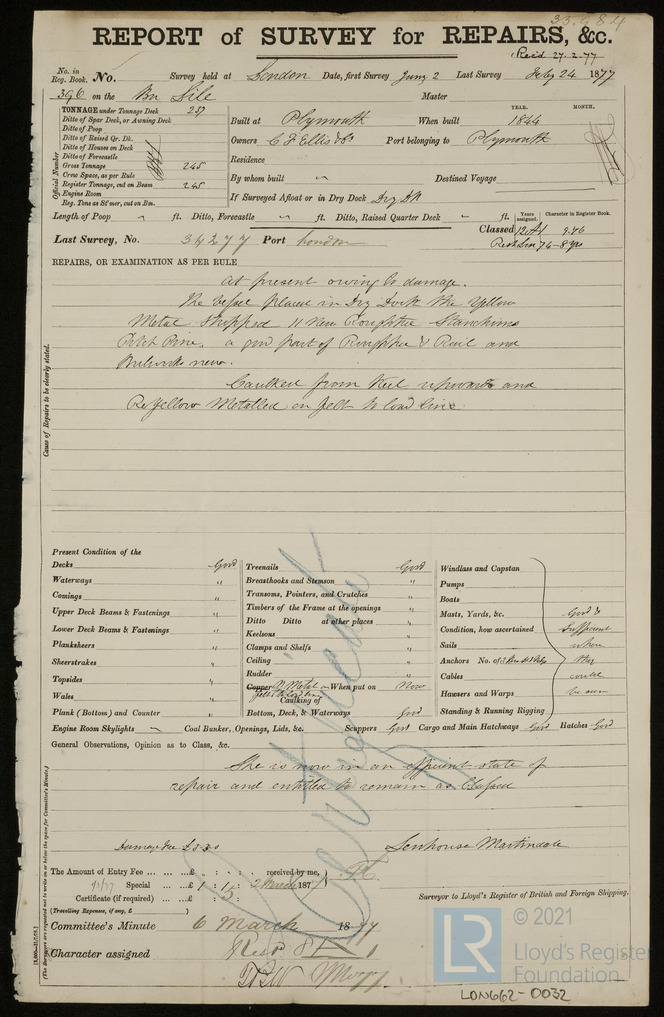 33.684
REPORT of SURVEY for REPAIRS, &c.
Rec'd 27.2.77
No. in Reg. Book. No. Survey held at London Date, first Survey Jany 2 Last Survey Feby 24 1877
396 on the Bn Lile Master
TONNAGE under Tonnage Deck 237
Ditto of Spar Deck, or Awning Deck
Ditto of Poop
Ditto of Raised Qr. Dk.
Ditto of Houses on Deck
Ditto of Forecastle
Gross Tonnage 245
Crew Space, as per Rule
Register Tonnage, cut on Beam 245
Engine Room
Reg. Tons as St'mer, cut on Bm.
Official Number
Built at Plymouth When built YEAR. 1844 MONTH.
Owners C F Ellis & Co Port belonging to Plymouth
Residence
By whom built " Destined Voyage
If Surveyed Afloat or in Dry Dock Dry Dk
Length of Poop " ft. Ditto, Forecastle " ft. Ditto, Raised Quarter Deck " ft.
Years assigned. Character in Register Book.
Classed 12 A1 9.76
Last Survey, No. 34277 Port London
Rest Lon 74-8 yrs
REPAIRS, OR EXAMINATION AS PER RULE
at present owing to damage.
The vessel placed in Dry Dock the Yellow
Metal stripped 11 New Roughtree Stanchions
Pitch Pine, a good part of Roughtree & Rail and
Bulwarks new.
Caulked from Keel upwards and
Re yellow Metalled on felt to load line
Cause of Repairs to be clearly stated.
Present Condition of the
Decks Good
Waterways "
Comings "
Upper Deck Beams & Fastenings "
Lower Deck Beams & Fastenings "
Planksheers "
Sheerstrakes "
Topsides "
Wales "
Plank (Bottom) and Counter "
Treenails Good
Breasthooks and Stemson "
Transoms, Pointers, and Crutches "
Timbers of the Frame at the openings "
Ditto Ditto at other places "
Keelsons "
Clamps and Shelfs "
Ceiling "
Rudder "
Copper Y Metal When put on Now
Caulking of
Bottom, Deck, & Waterways Good
Windlass and Capstan
Pumps
Boats
Masts, Yards, &c. Good &
Condition, how ascertained Sufficient
Sails where
Anchors No. of they
Cables could
Hawsers and Warps be seen
Standing & Running Rigging
Engine Room Skylights Coal Bunker, Openings, Lids, &c. Scuppers Good Cargo and Main Hatchways Good Hatches Good
General Observations, Opinion as to Class, &c.
She is now in an efficient state of
repair and entitled to remain as Classed
Certificate
Damage Fee £3.3.0
Senhouse Martindale
The Amount of Entry Fee ... ... £ : : received by me,
Special ... £ 1 : 1 : 2 March 1877
Certificate (if required) ... £ : :
(Travelling Expenses, if any, £ )
Surveyor to Lloyd's Register of British and Foreign Shipping.
Committee's Minute 6 March 1877
Character assigned
(The Surveyors are requested not to write on or below the space for Committee's Minute.)
© 2021
LR
Lloyd's Register
Foundation
LON662-0032